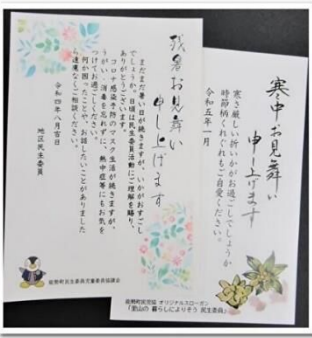 残暑お見舞い
申し上げます
まだまだ暑い日が続きますが、いかがおすごし
でしょうか。日頃は民生委員活動にご理解を賜り、
ありがとうございます。
コロナ感染予防のマスク生活が続きますが、
うがい・消毒を忘れずに、熱中症等にもお気を
つけてお過ごしください。
何か困ったことや、お話したいことがありました
ら遠慮なくご相談ください。
令和四年八月吉日
地区民生委員
能勢町民生委員児童委員協議会
寒中お見舞い
申し上げます
寒さ厳しい折いかがお過ごしでしょうか
時節柄くれぐれもご自愛ください。
令和五年一月
能勢町民児協 オリジナルスローガン
「里山の 暮らしによりそう 民生委員」